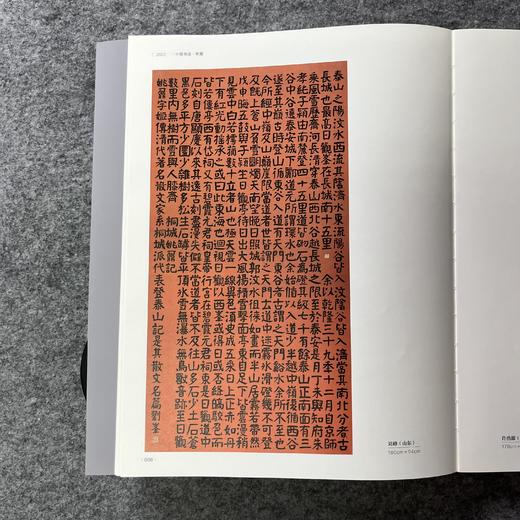 泰山之陽汶水西流其陰濟水東流陽谷皆入汶陰谷皆入濟當其南北分者古
長城也最高日觀峯在長城南十五里 余以乾隆三十九年十二月自京師
乘風雪歷齊河長清穿泰山西北谷越長城之限至于泰安是月丁未與知府朱
孝純子穎由南麓登四十五里道皆砌石為磴其級七千有餘泰山正南面有三
谷中谷遶泰安城下酈道元所謂環水也余始循以入道少半越中嶺復循西谷
遂至其巔古時登山循東谷入道有天門東谷者古謂之天門谿水余所不至也
今所經中嶺及山巔崖限當道者世皆謂之天門云道中迷霧冰滑磴幾不可登
及既上蒼山負雪明燭天南望晚日照城郭汶水徂徠如畫而半山居霧若帶然
戊申晦五鼓與子穎坐日觀亭待日出大風揚積雪擊面亭東自足下皆雲漫稍
見雲中白若樗蒱數十立者山也極天雲一線異色須臾成五采日上正赤如丹
下有紅光動搖承之或曰此東海也迴視日觀以西峯或得日或否絳皓駁色而
皆若僂亭西有岱祠又有碧霞元君祠皇帝行宮在碧霞元君祠東是日觀道中
石刻自唐顯慶以來其遠古刻盡漫失僻不當道者皆不及往山多石少土石蒼
黑色多平方少圜少雜樹多松生石罅皆平頂冰雪無瀑水無鳥獸音跡至日觀
數里內無樹而雪與人膝齊 桐城姚鼐記
姚鼐字姬傳清代著名散文家系桐城派代表登泰山記是其散文名篇 劉峯
(山东)
180cm×94cm
006